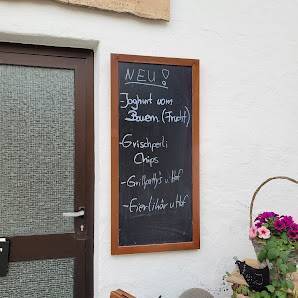 NEU!
-Joghurt vom
Bauern (Frucht)
-Grischperli
Chips
-Grillparty's u. Hof
-Eierlikör u. Hof